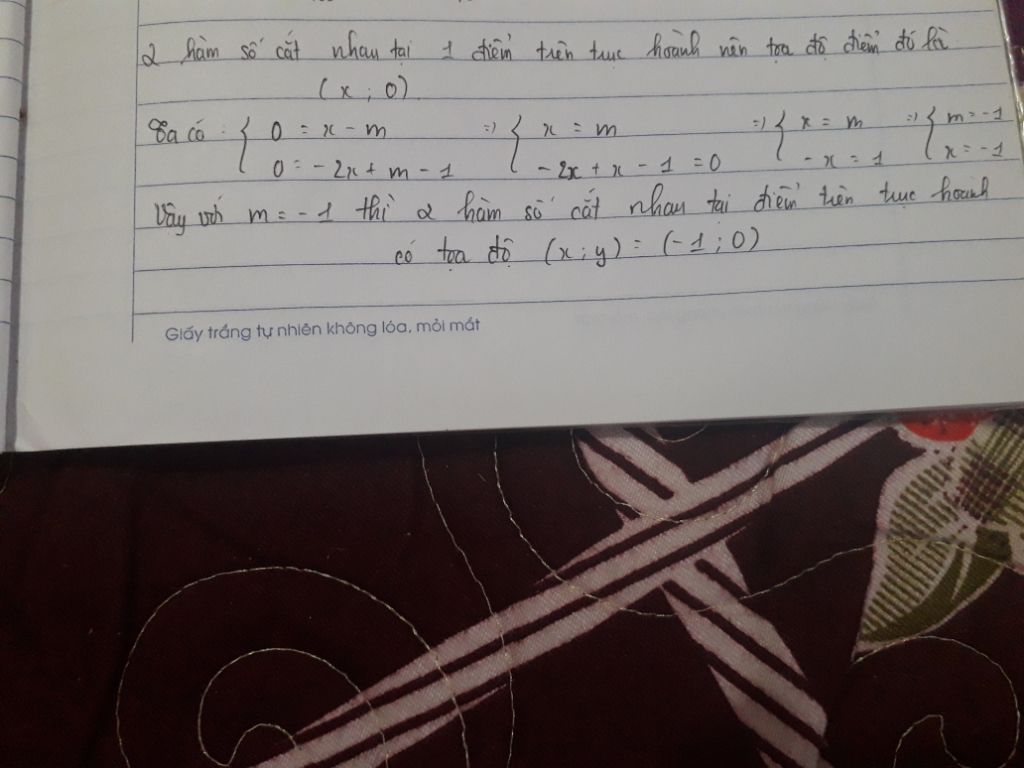 2 hàm số cắt nhau tại 1 điểm trên trục hoành nên tọa độ điểm đó là
(x ; 0)
Ta có : { 0 = x - m => { x = m => { x = m => { m = -1
0 = - 2x + m - 1 - 2x + x - 1 = 0 - x = 1 x = -1
Vậy với m = - 1 thì 2 hàm số cắt nhau tại điểm trên trục hoành
có tọa độ (x ; y) = (-1 ; 0)
Giấy trắng tự nhiên không lóa, mỏi mắt